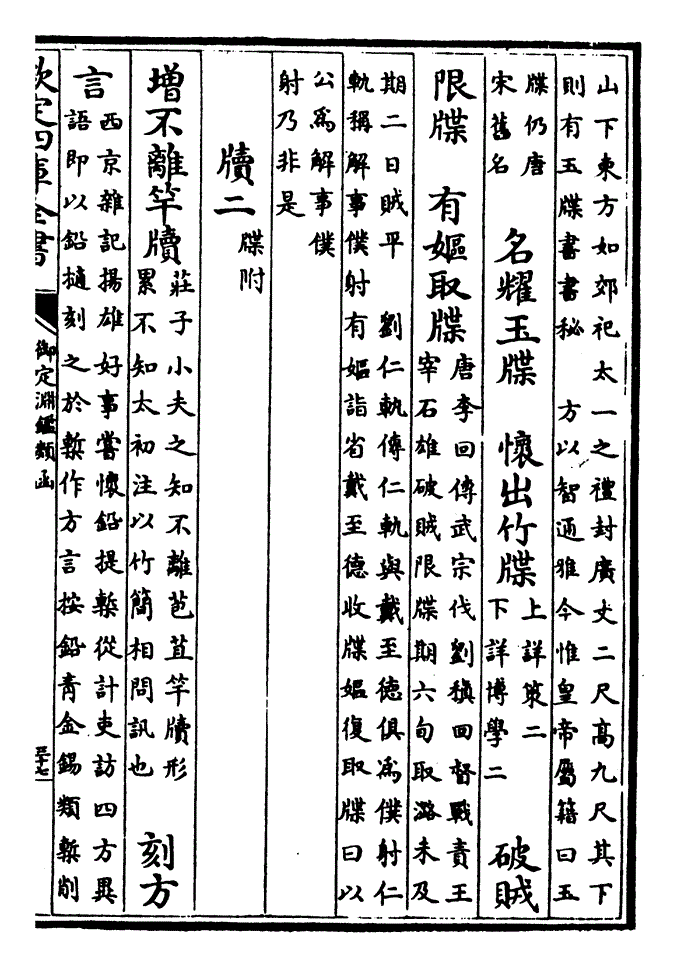 山下東方如郊祀太一之禮封廣丈二尺高九尺其下
則有玉牒書書秘　方以智通雅今惟皇帝屬籍曰玉
牒仍唐
宋舊名
名耀玉牒　懷出竹牒
上詳策二
下詳博學二
破賊
限牒　有嫗取牒
唐李回傳武宗伐劉稹回督戰責王
宰石雄破賊限牒期六旬取潞未及
期二日賊平　劉仁軌傳仁軌與戴至德俱為僕射仁
軌稱解事僕射有嫗詣省戴至德收牒嫗復取牒曰以
公為解事僕
射乃非是
牘二
牒附
增不離竿牘
莊子小夫之知不離苞苴竿牘形
累不知太初注以竹簡相問訊也
刻方
言
西京雜記揚雄好事嘗懷鉛提槧從計吏訪四方異
語即以鉛摘刻之於槧作方言按鉛青金錫類槧削
欽定四庫全書
御定淵鑑類函
三十七